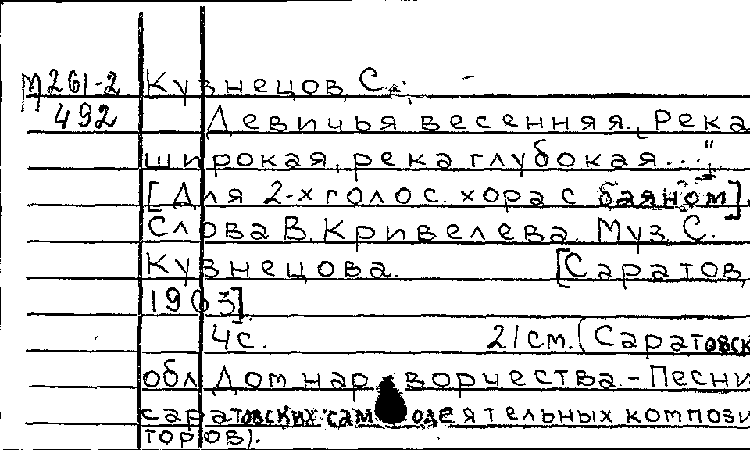 М261-2 Кузнецов, С.
492 Девичья весенняя. ["Река
широкая, река глубокая..."]
[Для 2-х голос. хора с баяном].
Слова В. Кривелева. Муз. С.
Кузнецова. [Саратов,
1963].
4с. 21см. (Саратовск.
обл. Дом нар. творчества. - Песни
саратовских самодеятельных компози
торов).